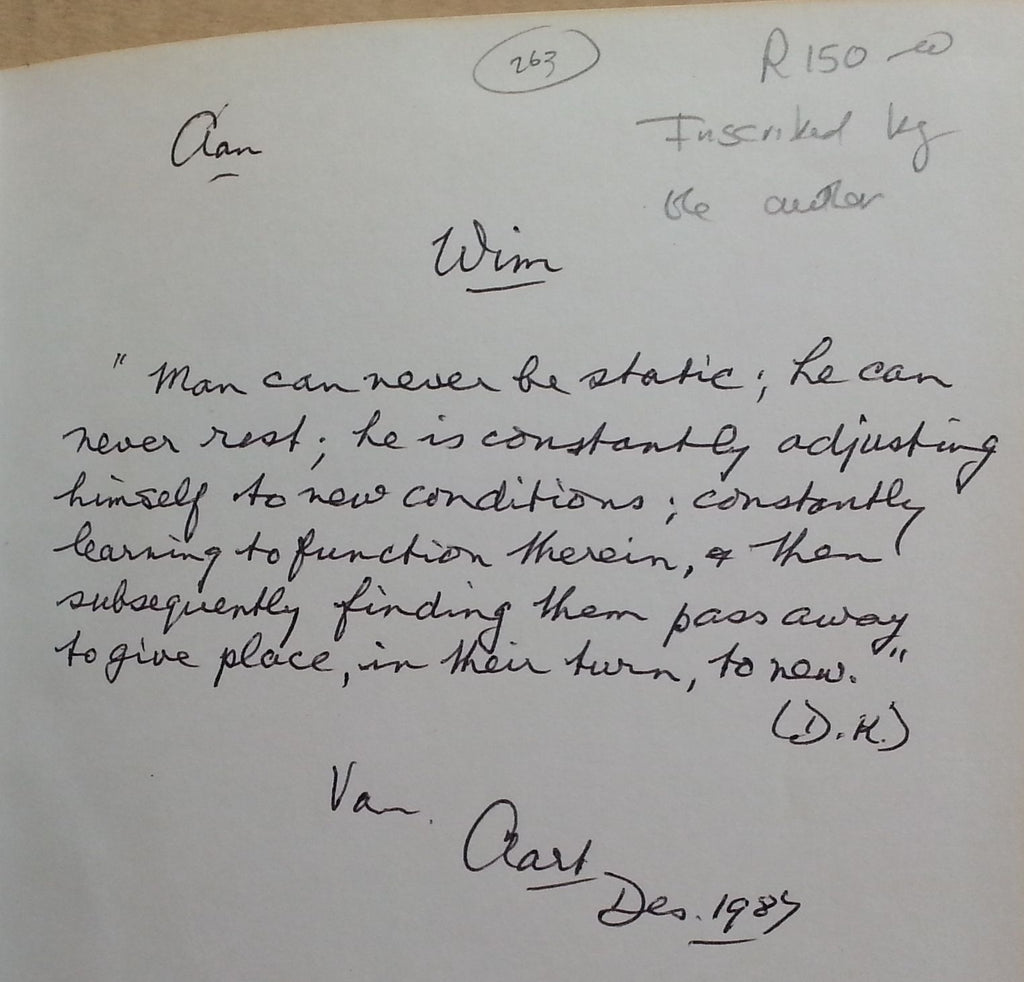 263
R150-00
Inscribed by
the author
Aan
Wim
" Man can never be static; he can
never rest; he is constantly adjusting
himself to new conditions; constantly
learning to function therein, & then
subsequently finding them pass away
to give place, in their turn, to new."
(D.K.)
Van.
Aart
Des. 1987